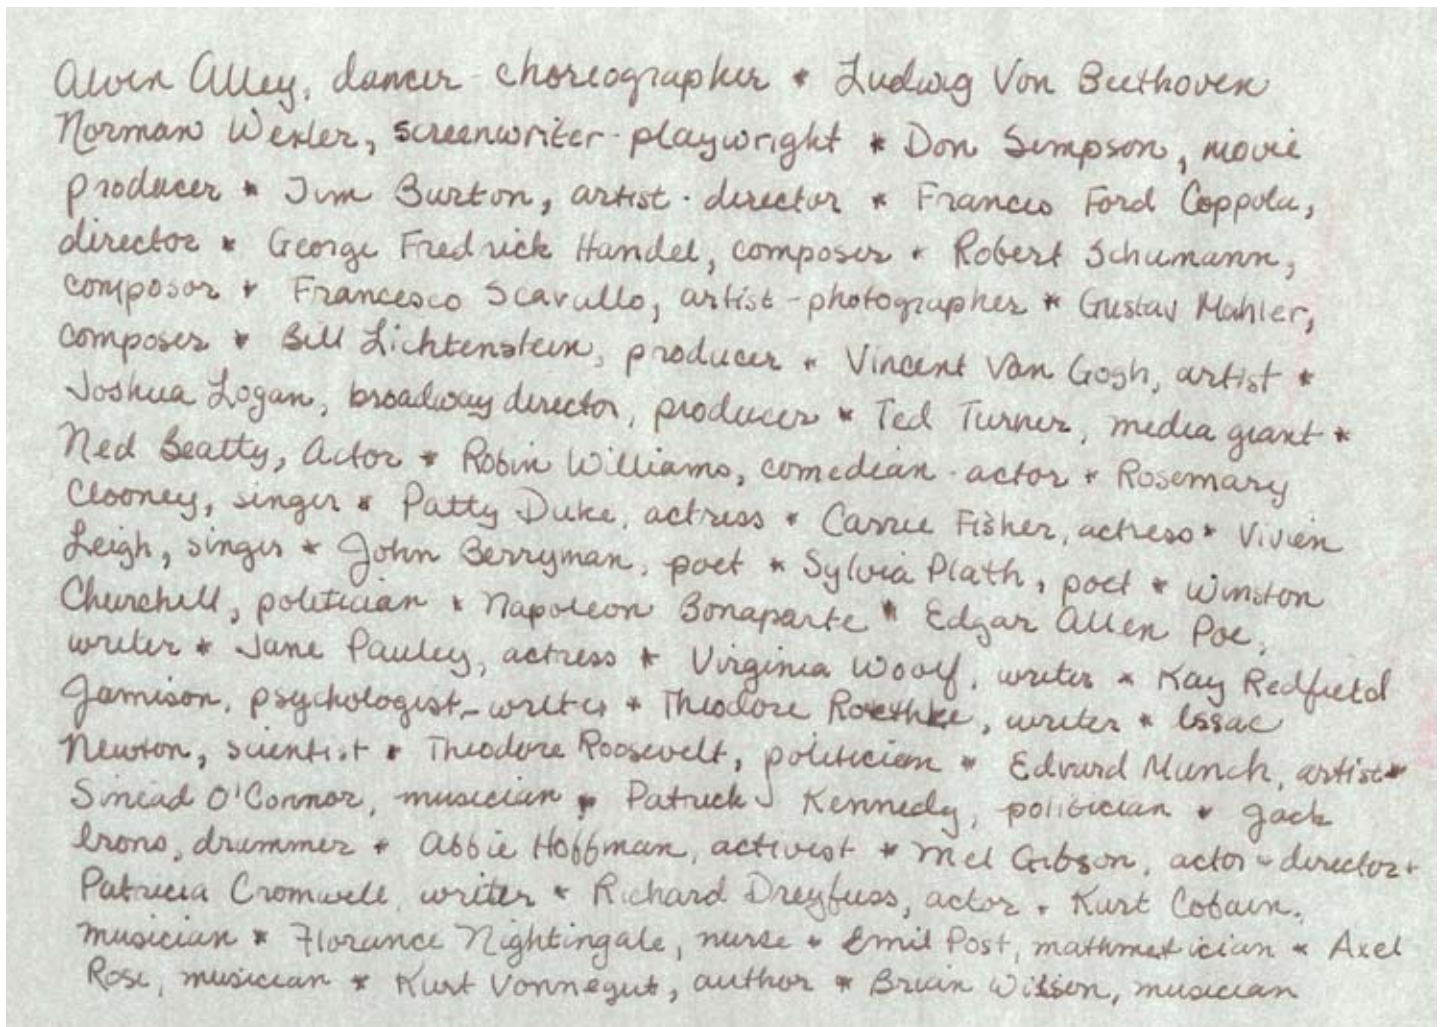 Alvin Alley, dancer - choreographer * Ludwig Von Beethoven
Norman Wexler, screenwriter - playwright * Don Simpson, movie
producer * Tim Burton, artist - director * Francis Ford Coppola,
director * George Fredrick Handel, composer * Robert Schumann,
composor * Francesco Scavullo, artist - photographer * Gustav Mahler,
composer * Bill Lichtenstein, producer * Vincent Van Gogh, artist *
Joshua Logan, broadway director, producer * Ted Turner, media giant *
Ned Beatty, Actor * Robin Williams, comedian - actor * Rosemary
Clooney, singer * Patty Duke, actress * Carrie Fisher, actress * Vivien
Leigh, singer * John Berryman, poet * Sylvia Plath, poet * Winston
Churchill, politician * Napoleon Bonaparte * Edgar Allen Poe,
writer * Jane Pauley, actress * Virginia Woolf, writer * Kay Redfield
Jamison, psychologist - writer * Theodore Roethke, writer * Issac
Newton, scientist * Theodore Roosevelt, politician * Edvard Munch, artist *
Sinead O'Connor, musician * Patrick J Kennedy, politician * Jack
Irons, drummer * Abbie Hoffman, activist * Mel Gibson, actor - director *
Patricia Cromwell, writer * Richard Dreyfuss, actor * Kurt Cobain,
musician * Florance Nightingale, nurse * Emil Post, mathmetician * Axel
Rose, musician * Kurt Vonnegut, author * Brian Wilson, musician